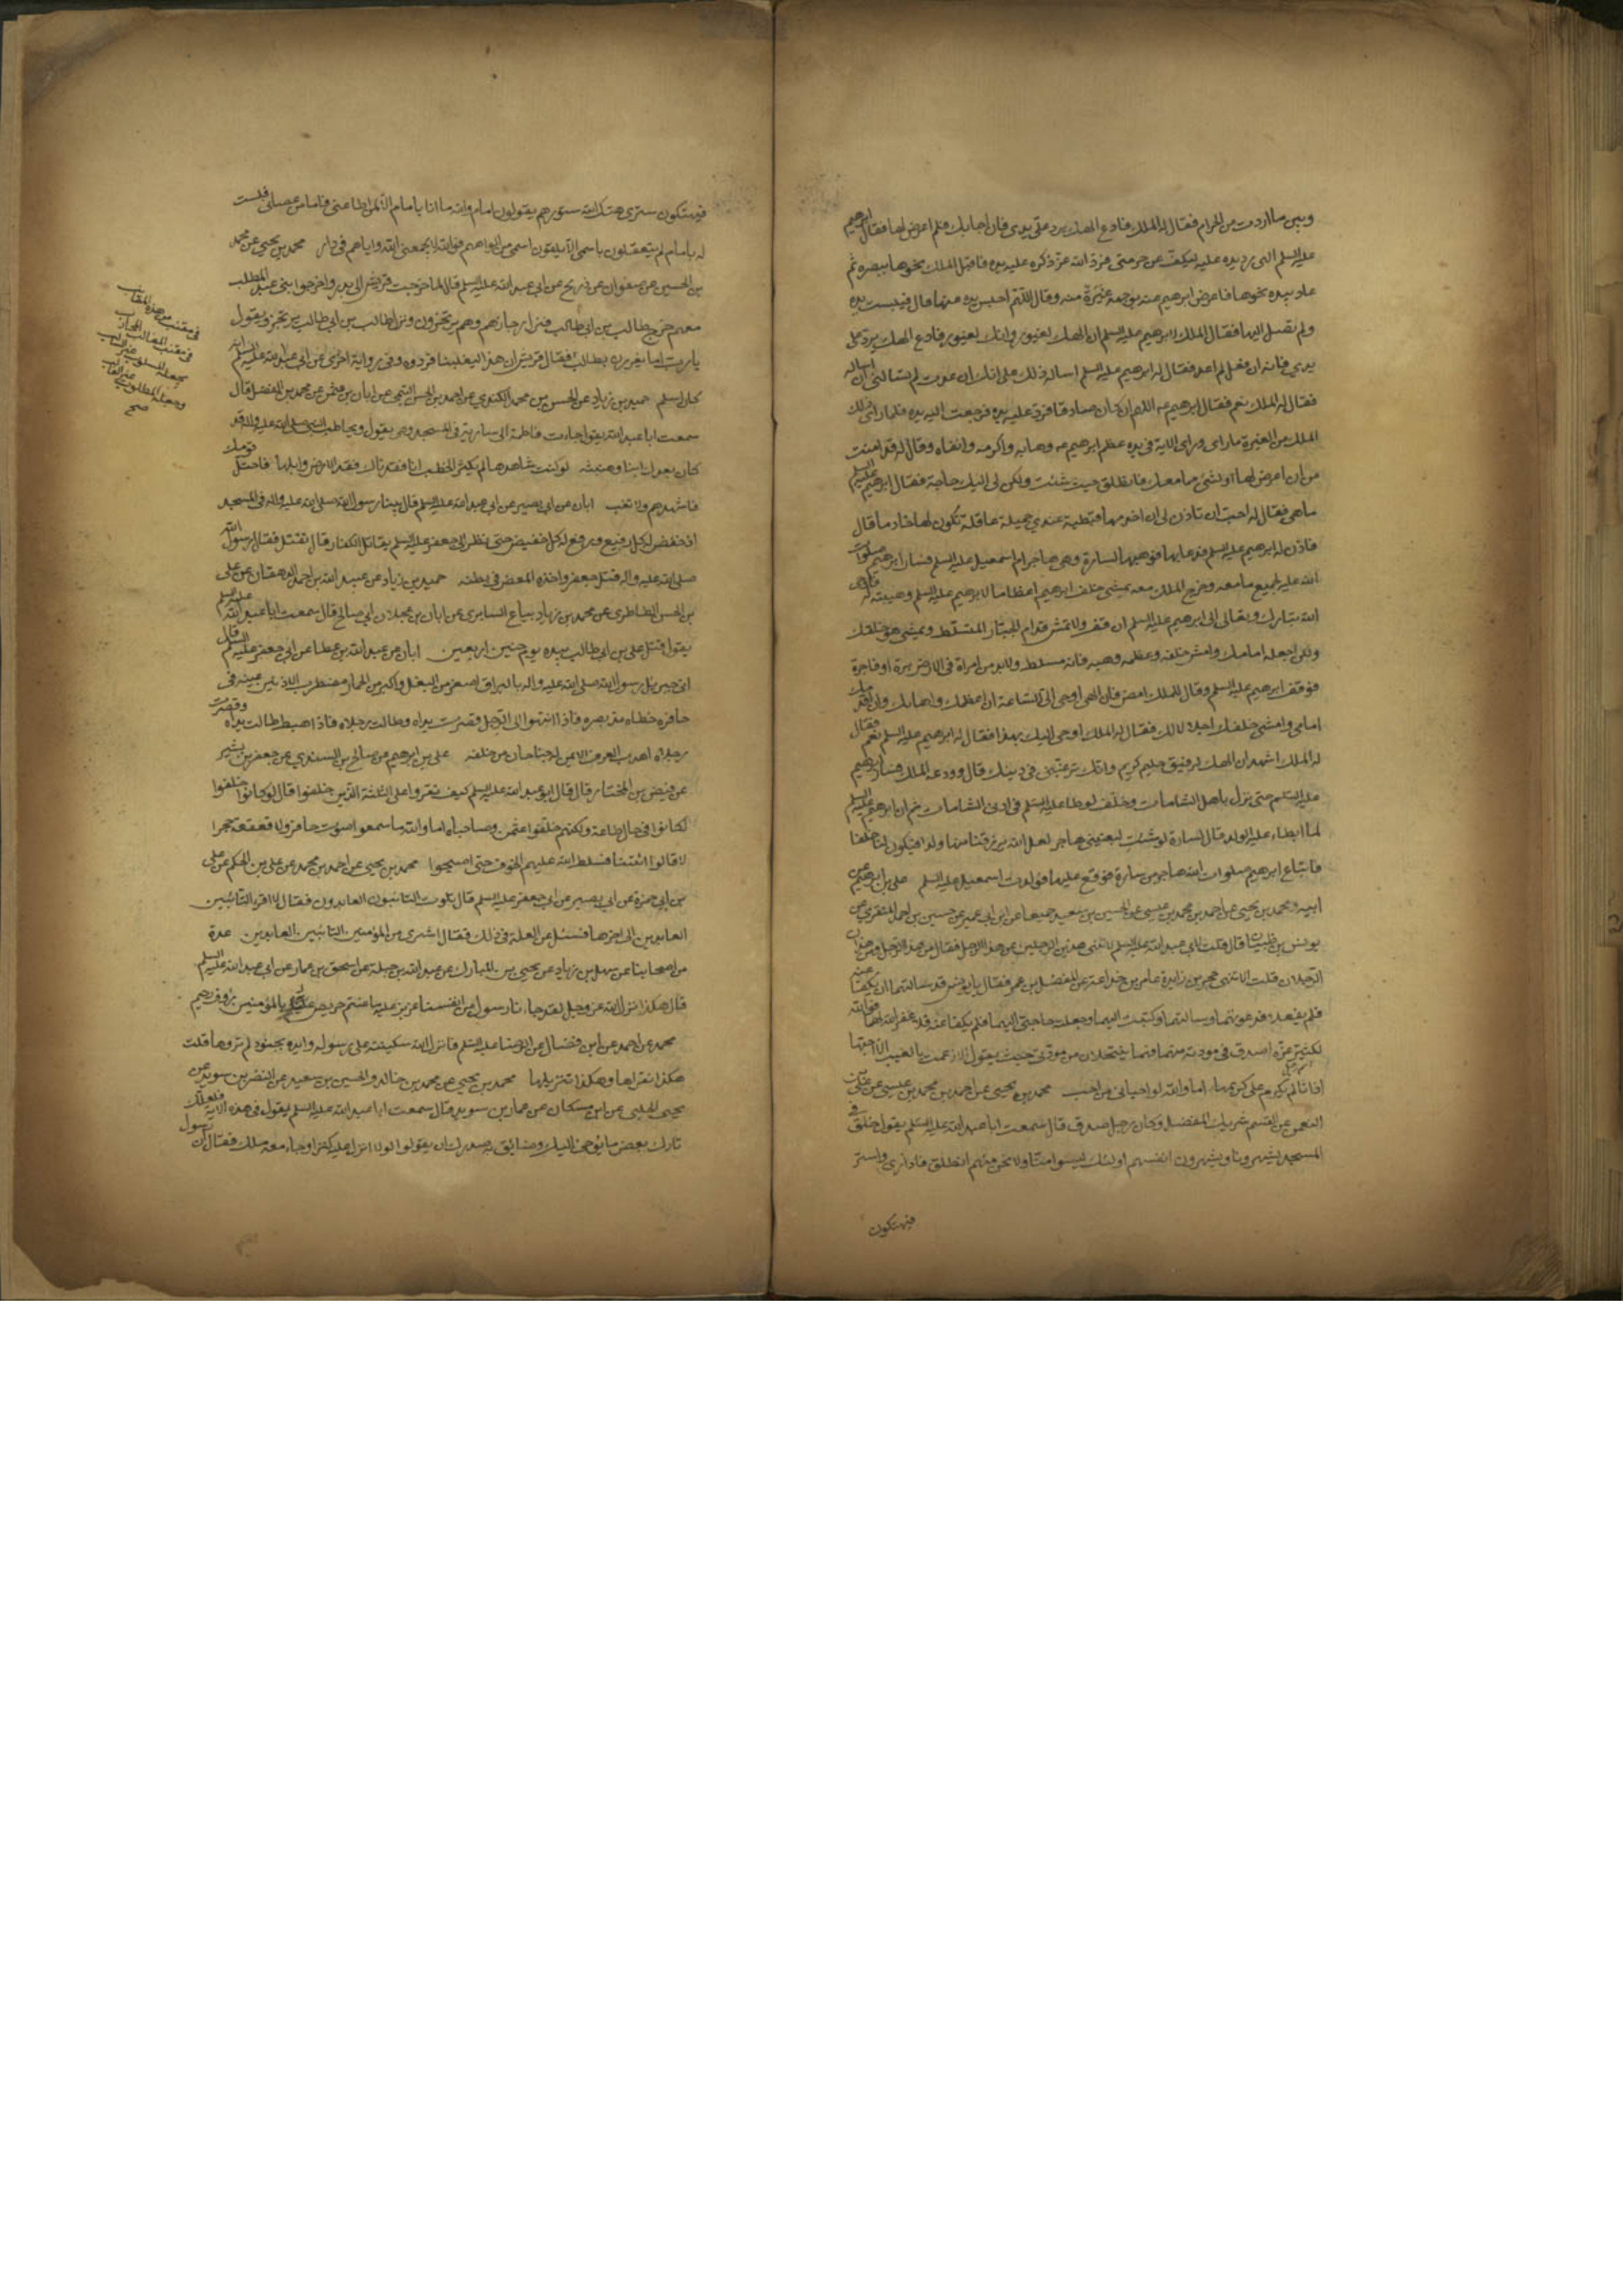 وبين ما اردت من الحرام فقال له الملك فادع الهك يرد على يدى فان اجابك فلم اعرض لها فقال ابرهيم
عليه السلم الهى رد يده عليه ليكف عن حرمتى فرد الله عز ذكره عليه يده فاقبل الملك نحوها ببصره ثم
عاد بيده نحوها فاعرض ابرهيم عنه بوجهه غيرة منه وقال اللهم احبس يده عنها قال فيبست يده
ولم تصل اليها فقال الملك لابرهيم عليه السلم ان الهك لغيور وانك لغيور فادع الهك يرد على
يدي فانه ان فعل لم اعد فقال له ابرهيم عليه السلم اساله ذلك على انك ان عدت لم تسالنى ان اساله
فقال له الملك نعم فقال ابرهيم عه اللهم ان كان صادقا فرد عليه يده فرجعت اليه يده فلما راى ذلك
الملك من الغيرة ما راى وراى الاية فى يده عظم ابرهيم عه وهابه واكرمه واتقاه وقال له قد امنت
من ان اعرض لها او لشئ مما معك فانطلق حيث شئت ولكن لى اليك حاجة فقال ابرهيم عليه السلم
ما هى فقال له احب ان تاذن لى ان اخدمها قبطية عندي جميلة عاقلة تكون لها خادما قال
فاذن له ابرهيم عليه السلم فدعا بها فوهبها لسارة وهى هاجر ام اسمعيل عليه السلم فسار ابرهيم صلوات
الله عليه بجميع ما معه وخرج الملك معه يمشى خلف ابرهيم اعظاما لابرهيم عليه السلم وهيبة له فاوحى
الله تبارك وتعالى الى ابرهيم عليه السلم ان قف ولا تمش قدام الجبار المتسلط ويمشى هو خلفك
ولكن اجعله امامك وامش خلفه وعظمه وهبه فانه مسلط ولابد من امراة فى الارض برة او فاجرة
فوقف ابرهيم عليه السلم وقال للملك امض فان الهى اوحى الى الساعة ان اعظمك واهابك وان اقدمك
امامى وامشى خلفك اجلالا لك فقال له الملك اوحى اليك بهذا فقال له ابرهيم عليه السلم نعم فقال
له الملك اشهد ان الهك لرفيق حليم كريم وانك ترغبنى فى دينك قال وودعه الملك فسار ابرهيم
عليه السلم حتى نزل باهل الشامات وخلف لوطا عليه السلم فى ادنى الشامات ثم ان ابرهيم عليه السلم
لما ابطاء عليه الولد قال لسارة لو شئت لبعتينى هاجر لعل الله يرزقنا منها ولدا فيكون لنا خلفا
فابتاع ابرهيم صلوات الله هاجر من سارة فوقع عليها فولدت اسمعيل عليه السلم على بن ابرهيم عن
ابيه ومحمد بن يحيى عن احمد بن محمد بن عيسى عن الحسين بن سعيد جميعا عن ابن ابى عمير عن حسين بن احمد المنقري عن
يونس بن ظبيان قال قلت لابى عبد الله عليه السلم الا تنهى هذين الرجلين عن هذا الرجل فقال من هذا الرجل ومن هذان
الرجلان قلت الا تنهى حجر بن زايدة وعامر بن جذاعة عن المفضل بن عمر فقال يا يونس قد سالتهما ان يكفا عنه
فلم يفعلا فدعوتهما وسالتهما وكتبت اليهما وجعلته حاجتى اليهما فلم يكفا عنه فلا غفر الله لهما فوالله
لكثير عزة اصدق فى مودته منهما فيما ينتحلان من مودتى حيث يقول الا زعمت بالغيب الا احبها
اذا انا لم يكرم على كريمها اما والله لو احبانى من احب محمد بن يحيى عن احمد بن محمد بن عيسى عن على بن
النعمن عن القسم شريك المفضل وكان رجل صدق قال سمعت ابا عبد الله عليه السلم يقول خلق فى
المسجد يشهرونا ويشهرون انفسهم اولئك ليسوا منا ولا نحن منهم انطلق فادارى واستر
فيهتكون
فيهتكون سترى هتك الله ستورهم يقولون امام والله ما انا بامام الا لمن اطاعنى فاما من عصانى فلست
له بامام لم يتعلقون باسمى الا يلقون اسمى من افواههم فوالله لا يجمعنى الله واياهم فى دار محمد بن يحيى عن محمد
بن الحسين عن صفوان عن ذريح عن ابي عبد الله عليه السلم قال لما خرجت قريش الى بدر واخرجوا بنى عبد المطلب
معهم خرج طالب بن ابى طالب فنزل رجازهم وهم يرتجزون ونزل طالب بن ابى طالب يرتجز ويقول
يا رب اما يغزون بطالب فقال قريش ان هذا ليغلبنا فردوه وفى رواية اخرى عن ابى عبد الله عليه السلم انه
كان اسلم حميد بن زياد عن الحسن بن محمد الكندي عن احمد بن الحسن التيمى عن ابان بن عثمن عن محمد بن المفضل قال
سمعت ابا عبد الله يقول جاءت فاطمة الى سارية فى المسجد وهى تقول وتخاطب النبى صلى الله عليه واله قد
كان بعدك انبا وهنبثة لو كنت شاهدها لم يكثر الخطب انا فقدناك فقد الارض وابلها فاختل قومك
فاشهدهم ولا تغب ابان عن ابى بصير عن ابى عبد الله عليه السلم قال بينا رسول الله صلى الله عليه واله فى المسجد
اذ خفض له كل رفيع ورفع له كل خفيض حتى نظر الى جعفر عليه السلم يقاتل الكفار قال فقتل فقال رسول الله
صلى الله عليه واله قتل جعفر واخذه المغص فى بطنه حميد بن زياد عن عبيد الله بن احمد الدهقان عن على
بن الحسن الطاطرى عن محمد بن زياد بياع السابرى عن ابان عن عجلان ابى صالح قال سمعت ابا عبد الله عليه السلم
يقول قتل على بن ابى طالب بيده يوم حنين اربعين ابان عن عبد الله بن عطا عن ابى جعفر عليه السلم قال
اتى جبرئيل رسول الله صلى الله عليه واله بالبراق اصغر من البغل واكبر من الحمار مضطرب الاذنين عينيه فى
حافره خطاه مد بصره فاذا انتهوا الى الجبل قصرت يداه وطالت رجلاه فاذا هبط طالت يداه وقصرت
رجلاه اهدب العرف الايمن له جناحان من خلفه على بن ابرهيم عن صالح بن السندي عن جعفر بن بشير
عن فيض بن المختار قال قال ابو عبد الله عليه السلم كيف تقروا على الثلثة الذين خلفوا قال لو كانوا خلفوا
لكانوا فى حال طاعة ولكنهم خالفوا عثمن وصاحباه اما والله ما سمعوا صوت حافر ولا قعقعة حجر
الا قالوا اتينا فسلط الله عليهم الخوف حتى اصبحوا محمد بن يحيى عن احمد بن محمد عن على بن الحكم عن على
بن ابى حمزة عن ابى بصير عن ابى جعفر عليه السلم قال تلوت التائبون العابدون فقال لا اقرا التائبين
العابدين الى اخرها فسئل عن العلة فى ذلك فقال اشترى من المؤمنين التائبين العابدين عدة
من اصحابنا عن سهل بن زياد عن يحيى بن المبارك عن عبد الله بن جبلة عن اسحق بن عمار عن ابى عبد الله عليه السلم
قال هكذا انزل الله عز وجل لقد جاءنا رسول من انفسنا عزيز عليه ما عنتم حريص عليكم بالمؤمنين رؤف رحيم
محمد عن احمد عن ابن فضال عن الرضا عليه السلم فانزل الله سكينته على رسوله وايده بجنود لم تروها قلت
هكذا نقراها وهكذا تنزيلها محمد بن يحيى عن محمد بن خالد والحسين بن سعيد عن النضر بن سويد عن
يحيى الحلبى عن ابن مسكان عن عمار بن سويد قال سمعت ابا عبد الله عليه السلم يقول فى هذه الاية فلعلك
تارك بعض ما يوحى اليك وضائق به صدرك ان يقولوا لولا انزل عليه كنز او جاء معه ملك فقال ان رسول
فى مقنب من هذه المقانب
فى مقنب المغالب المحارب
بجعله المسلوب غير السالب
وجعله المغلوب غير الغالب
صح